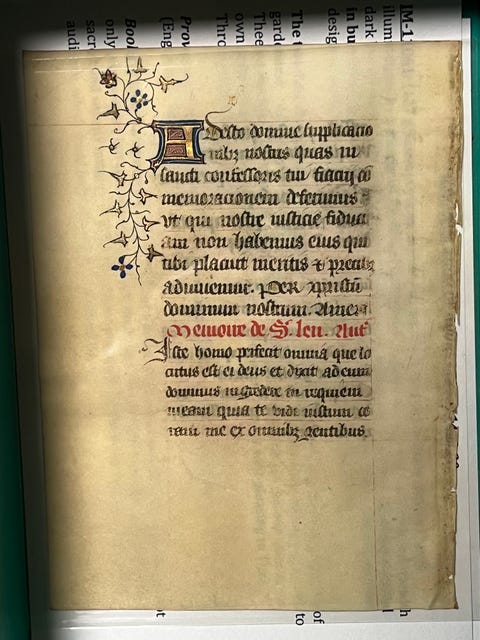 Adesto domine supplicacio
nibz nostris quas in
sancti confessoris tui fiacrij co
memoracionem deferimus
vt qui nostre iusticie fiduci
am non habemus eius qui
tibi placuit meritis & precibz
adiuuemur. PER xpristū
dominum nostrum. Amen
Memoire de St. leu. Ant
Iste homo perfecit omnia que lo
cutus est ei deus et dixit ad eum
dominus ingredere in requiem
meam quia te vidi iustum co
ram me ex omnibz gentibus.
IM-11
illum
dark
in bu
desig
The t
gard
Thee
own
Thro
Prov
(Eng
Book
only
sacr
audi
of
to